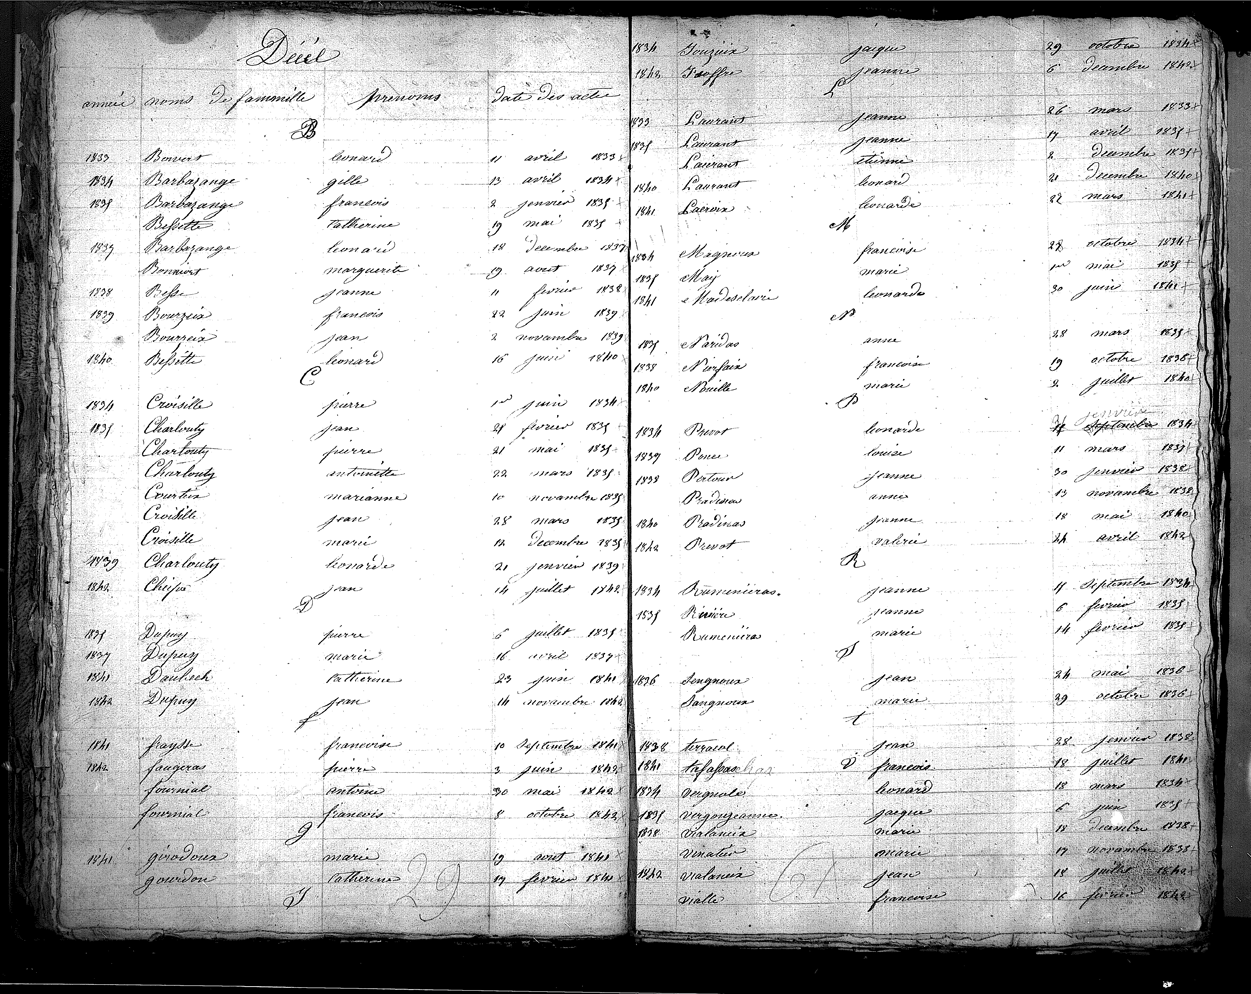 Décél
année noms de fammille prenoms date des acte
B
1833 Bonvert leonard 11 avril 1833
1834 Barbazange gille 13 avril 1834
1835 Barbazange francois 2 janvier 1835
Bessette catherine 19 mai 1835
1837 Barbazange leonard 18 decembre 1837
Bonnivert marguerite 19 aout 1837
1838 Besse jeanne 11 fevrier 1838
1839 Bourzeix francois 22 juin 1839
Bourzeix jean 2 novembre 1839
1840 Bessette leonard 16 juin 1840
C
1834 Croisille pierre 1er juin 1834
1835 Charlouty jean 21 fevrier 1835
Charlouty pierre 21 mai 1835
Charlouty antoinette 22 mars 1835
Courteix marianne 10 novembre 1835
Croisille jean 28 mars 1835
Croisille marie 12 decembre 1835
1839 Charlouty leonarde 21 janvier 1839
1842 Chiepa jean 14 juillet 1842
D
1835 Dupuy pierre 6 juillet 1835
1837 Dupuy marie 16 avril 1837
1841 Daubech catherine 23 juin 1841
1842 Dupuy jean 14 novembre 1842
f
1841 fraysse francoise 10 septembre 1841
1842 faugeras pierre 3 juin 1842
fournial antoine 30 mai 1842
fournial francois 8 octobre 1842
g
1841 girodoux marie 19 aout 1841
gourdon catherine 17 fevrier 1841
J
29
1834 Jouzeix jacque 29 octobre 1834
1842 Joffre jeanne 6 decembre 1842
L
1833 Laurant jeanne 26 mars 1833
1835 Laurant jeanne 17 avril 1835
Laurant etienne 2 decembre 1835
1840 Laurant leonard 21 decembre 1840
1841 Lacroix leonarde 22 mars 1841
M
1834 Magnoux francoise 28 octobre 1834
1835 May marie 1er mai 1835
1841 leonarde 30 juin 1841
N
1835 Naridas anne 28 mars 1835
1838 Norfaix francoise 19 octobre 1838
1840 Nouille marie 2 juillet 1840
P
janvier
1834 Prevot leonarde septembre 1834
1837 Ponce louise 11 mars 1837
1838 Pertour jeanne 30 janvier 1838
Pradinas anne 13 novembre 1838
1840 Pradinas jeanne 18 mai 1840
1842 Prevot valerie 24 avril 1842
R
1834 Rumenieras jeanne 11 septembre 1834
1835 Riviere jeanne 6 fevrier 1835
Rumenieras marie 14 fevrier 1835
S
1836 Sengnoux jean 24 mai 1836
Sangnoux marie 29 octobre 1836
t
1838 terracol jean 28 janvier 1838
1841 francois 18 juillet 1841
V
1834 vergnole leonard 18 mars 1834
1835 vergougeanne jacque 6 juin 1835
1838 vialaneix marie 18 decembre 1838
vinatier marie 17 novembre 1838
1842 vialaneix jean 18 juillet 1842
vialle francoise 16 fevrier 1842